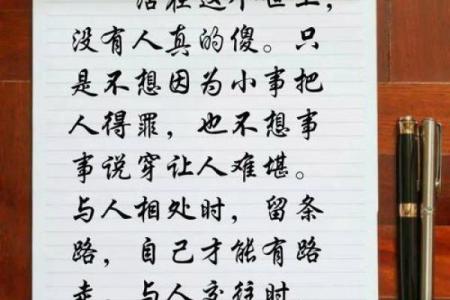 活在这个世上，
没有人真的傻。只
是不想因为小事把
人得罪，也不想事
事说穿让人难堪。
与人相处时，留条
路，自己才能有路
走，与人交往时